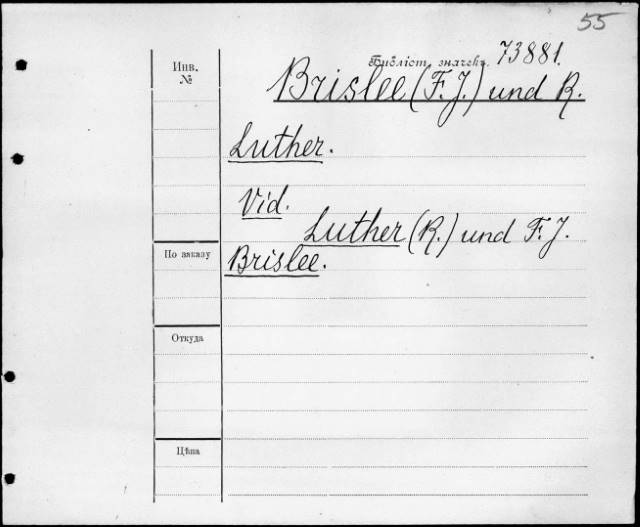 55
Инв. №
Библіот. значекъ 73881.
Brislee (F. J.) und R.
Luther.
Vid.
Luther (R.) und F. J.
Brislee.
По заказу
Откуда
Цѣна